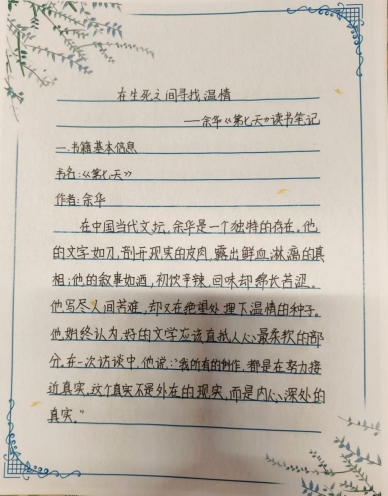 在生死之间寻找温情
——余华《第七天》读书笔记
一.书籍基本信息
书名:《第七天》
作者:余华
在中国当代文坛,余华是一个独特的存在。他
的文字如刀,剖开现实的皮肉,露出鲜血淋漓的真
相;他的叙事如酒,初饮辛辣,回味却绵长苦涩。
他写尽人间苦难,却又在绝望处埋下温情的种子。
他始终认为,好的文学应该直抵人心最柔软的部
分。在一次访谈中,他说:"我所有的创作,都是在努力接
近真实。这个真实不是外在的现实,而是内心深处的
真实。"